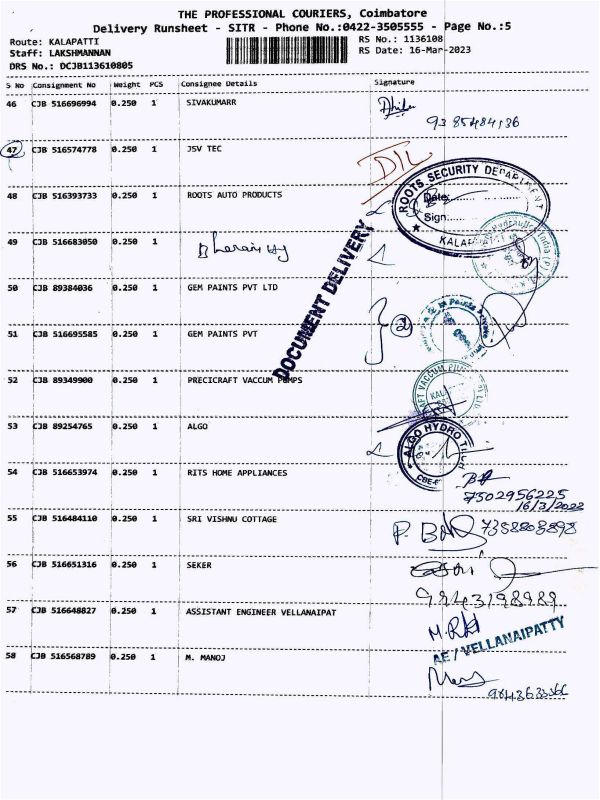 THE PROFESSIONAL COURIERS, Coimbatore
Delivery Runsheet - SITR - Phone No.:0422-3505555 - Page No.:5
Route: KALAPATTI
RS No.: 1136108
Staff: LAKSHMANNAN
RS Date: 16-Mar-2023
DRS No.: DCJB113610805
S No Consignment No Weight PCS Consignee Details Signature
46 CJB 516696994 0.250 1 SIVAKUMARR
9385484136
47 CJB 516574778 0.250 1 JSV TEC
DIL
48 CJB 516393733 0.250 1 ROOTS AUTO PRODUCTS
ROOTS SECURITY DEPARTMENT
Date:
Sign:
KALAPATTI
49 CJB 516683050 0.250 1
DOCUMENT DELIVERY
50 CJB 89384036 0.250 1 GEM PAINTS PVT LTD
51 CJB 516695585 0.250 1 GEM PAINTS PVT
2
52 CJB 89349900 0.250 1 PRECICRAFT VACCUM PUMPS
53 CJB 89254765 0.250 1 ALGO
ALGO HYDRO
54 CJB 516653974 0.250 1 RITS HOME APPLIANCES
7502956225
16/3/2022
55 CJB 516484110 0.250 1 SRI VISHNU COTTAGE
7358803898
56 CJB 516651316 0.250 1 SEKER
9843198989
57 CJB 516648827 0.250 1 ASSISTANT ENGINEER VELLANAIPAT
AE / VELLANAIPATTY
58 CJB 516568789 0.250 1 M. MANOJ